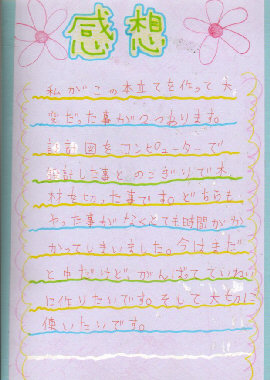 感想
私がこの本立てを作って大
変だった事が2つあります。
設計図をコンピューターで
設計した事と、のこぎりで木
材を切った事です。どちらも
やった事がなくとても時間がか
かってしまいました。今はまだ
と中だけど、がんばってていねい
に作りたいです。そして大切に
使いたいです。